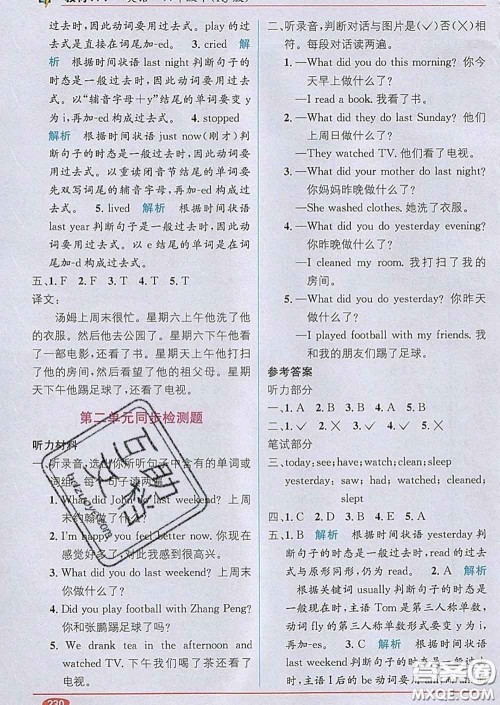 过去时态,因此动词要用过去式。play 的过
去式是直接在词尾加-ed。 3. cried 解
析 根据时间状语 last night 判断句子的
时态是一般过去时,因此动词要用过去
式。以“辅音字母+y”结尾的单词要变
y 为 i,再加-ed 构成过去式。 4. stopped
解析 根据时间状语 just now(刚才)判
断句子的时态是一般过去时,因此动词要
用过去式。以重读闭音节结尾的单词要
先双写词尾的辅音字母,再加-ed 构成过
去式。 5. lived 解析 根据时间状语
last year 判断句子是一般过去时,因此动
词要用过去式。以 e 结尾的单词是在词尾
加-d 构成过去式。
五、1. F 2. F 3. T 4. T 5. T
译文:
汤姆上周末很忙。星期六上午他洗了他
的衣服。然后他去公园了。星期六下午他看
了一部电影,还看了书。星期天上午他打扫
了他的房间,然后看望了他的祖父母。星期
天下午他踢足球了,还看了电视。
第二单元同步检测题
听力材料
一、听录音,选出你所听句子中含有的单词或
词组。每个句子读两遍。
1. What did John do last weekend? 上周
末约翰做了什么?
2. I'm happy you feel better now. 你现在
感觉好多了,我对此感到很高兴。
3. What did you do last weekend? 上周末
你做什么了?
4. Did you play football with Zhang Peng?
你和张鹏踢足球了吗?
5. We drank tea in the afternoon and
watched TV. 下午我们喝了茶还看了电
视。
220
二、听录音,判断对话与图片是(√)否(×)相符。
每段对话读两遍。
1. —What did you do this morning? 你今
天早上做什么了?
—I read a book. 我看了书。
2. —What did they do last Sunday? 他们上
周日做什么了?
—They watched TV. 他们看了电视。
3. —What did your mother do last night?
你妈妈昨晚做什么了?
—She washed clothes. 她洗了衣服。
4. —What did you do yesterday evening?
你昨晚做什么了?
—I cleaned my room. 我打扫了我的
房间。
5. —What did you do yesterday? 你昨天
做什么了?
—I played football with my friends. 我
和我的朋友们踢了足球。
参考答案
听力部分
一、1. A 2. B 3. A 4. A 5. B
二、1. √ 2. × 3. √ 4. × 5. √
笔试部分
三、today; see; have; watch; clean; sleep
yesterday: saw; had; watched; cleaned;
slept
四、1. A 2. A 3. B 4. A 5. A
五、1. B 解析 根据时间状语 yesterday 判
断句子的时态是一般过去时,read 的过去
式与原形同形,仍为 read。 2. A 解析
根据关键词 usually 判断句子的时态是
一般现在时,主语 Tom 是第三人称单数,
动词 play 的第三人称单数形式要变为 i,
再加-es。 3. C 解析 根据时间状语 last
weekend 判断句子的时态是一般过去时,
主语 I 后的 be 动词要用
互助文科
答案圈
MXQE.COM